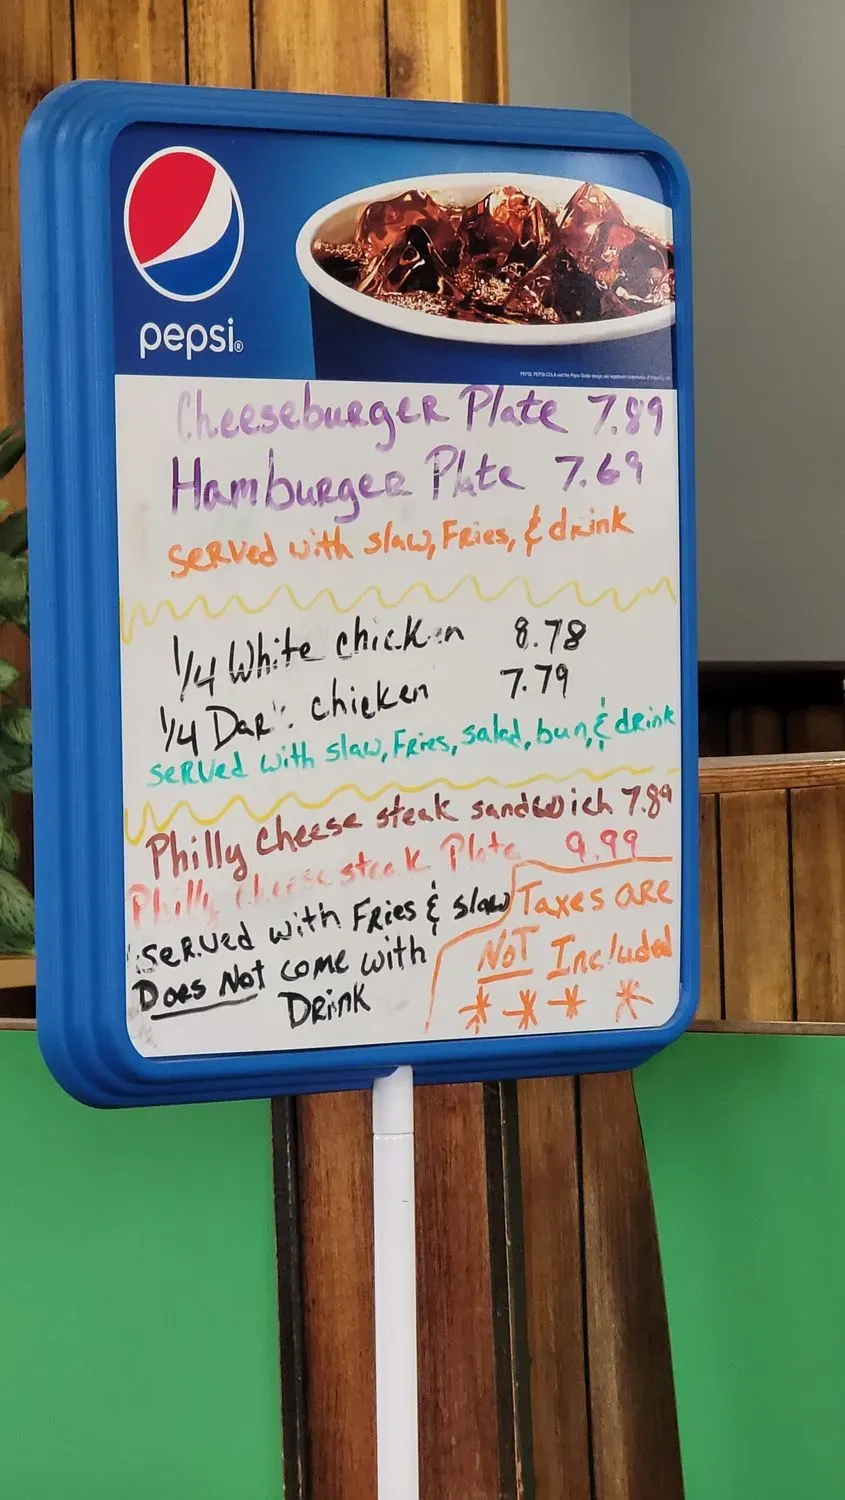 pepsi®
Cheeseburger Plate 7.89
Hamburger Plate 7.69
Served with slaw, Fries, & drink
1/4 White chicken 8.78
1/4 Dark chicken 7.79
served with slaw, Fries, salad, bun, & drink
Philly cheese steak sandwich 7.89
Philly cheese steak Plate 9.99
served with Fries & slaw
Does Not come with
Drink
Taxes are
NOT Included